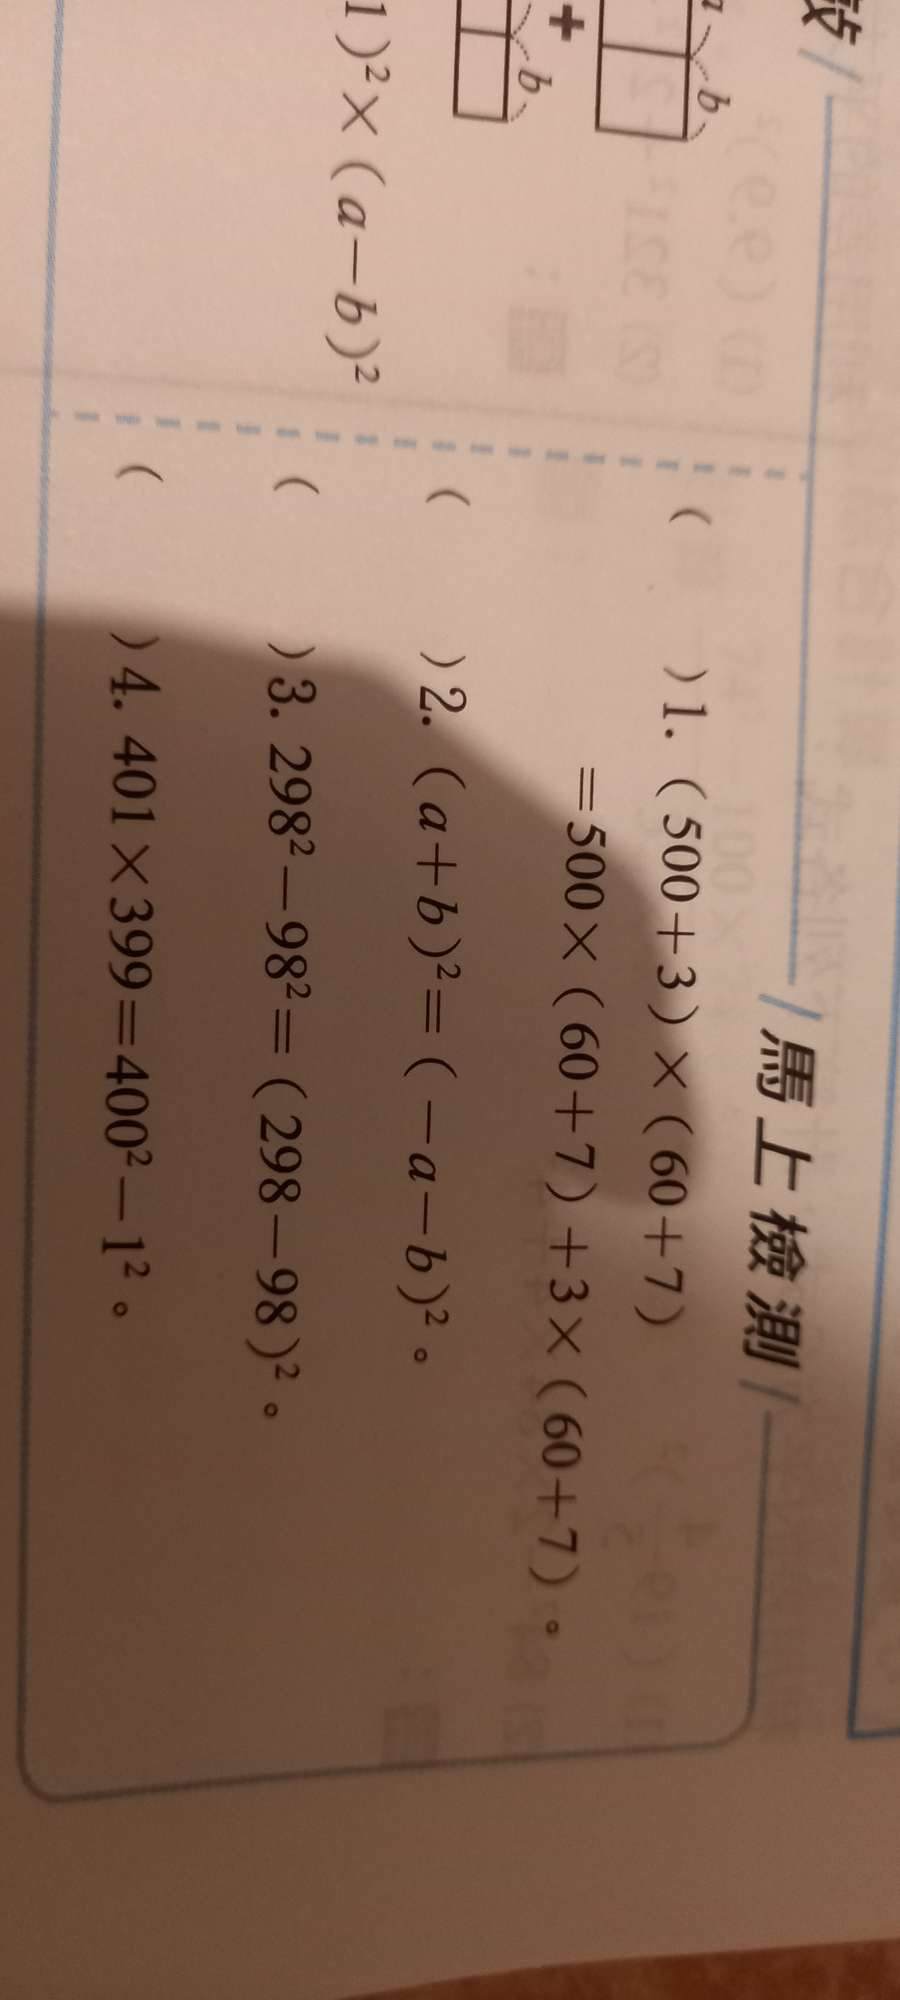 a b
+
b
1)²×(a－b)²
馬上檢測
(　　)1. (500＋3)×(60＋7)
＝500×(60＋7)＋3×(60＋7)。
(　　)2. (a＋b)²＝(－a－b)²。
(　　)3. 298²－98²＝(298－98)²。
(　　)4. 401×399＝400²－1²。